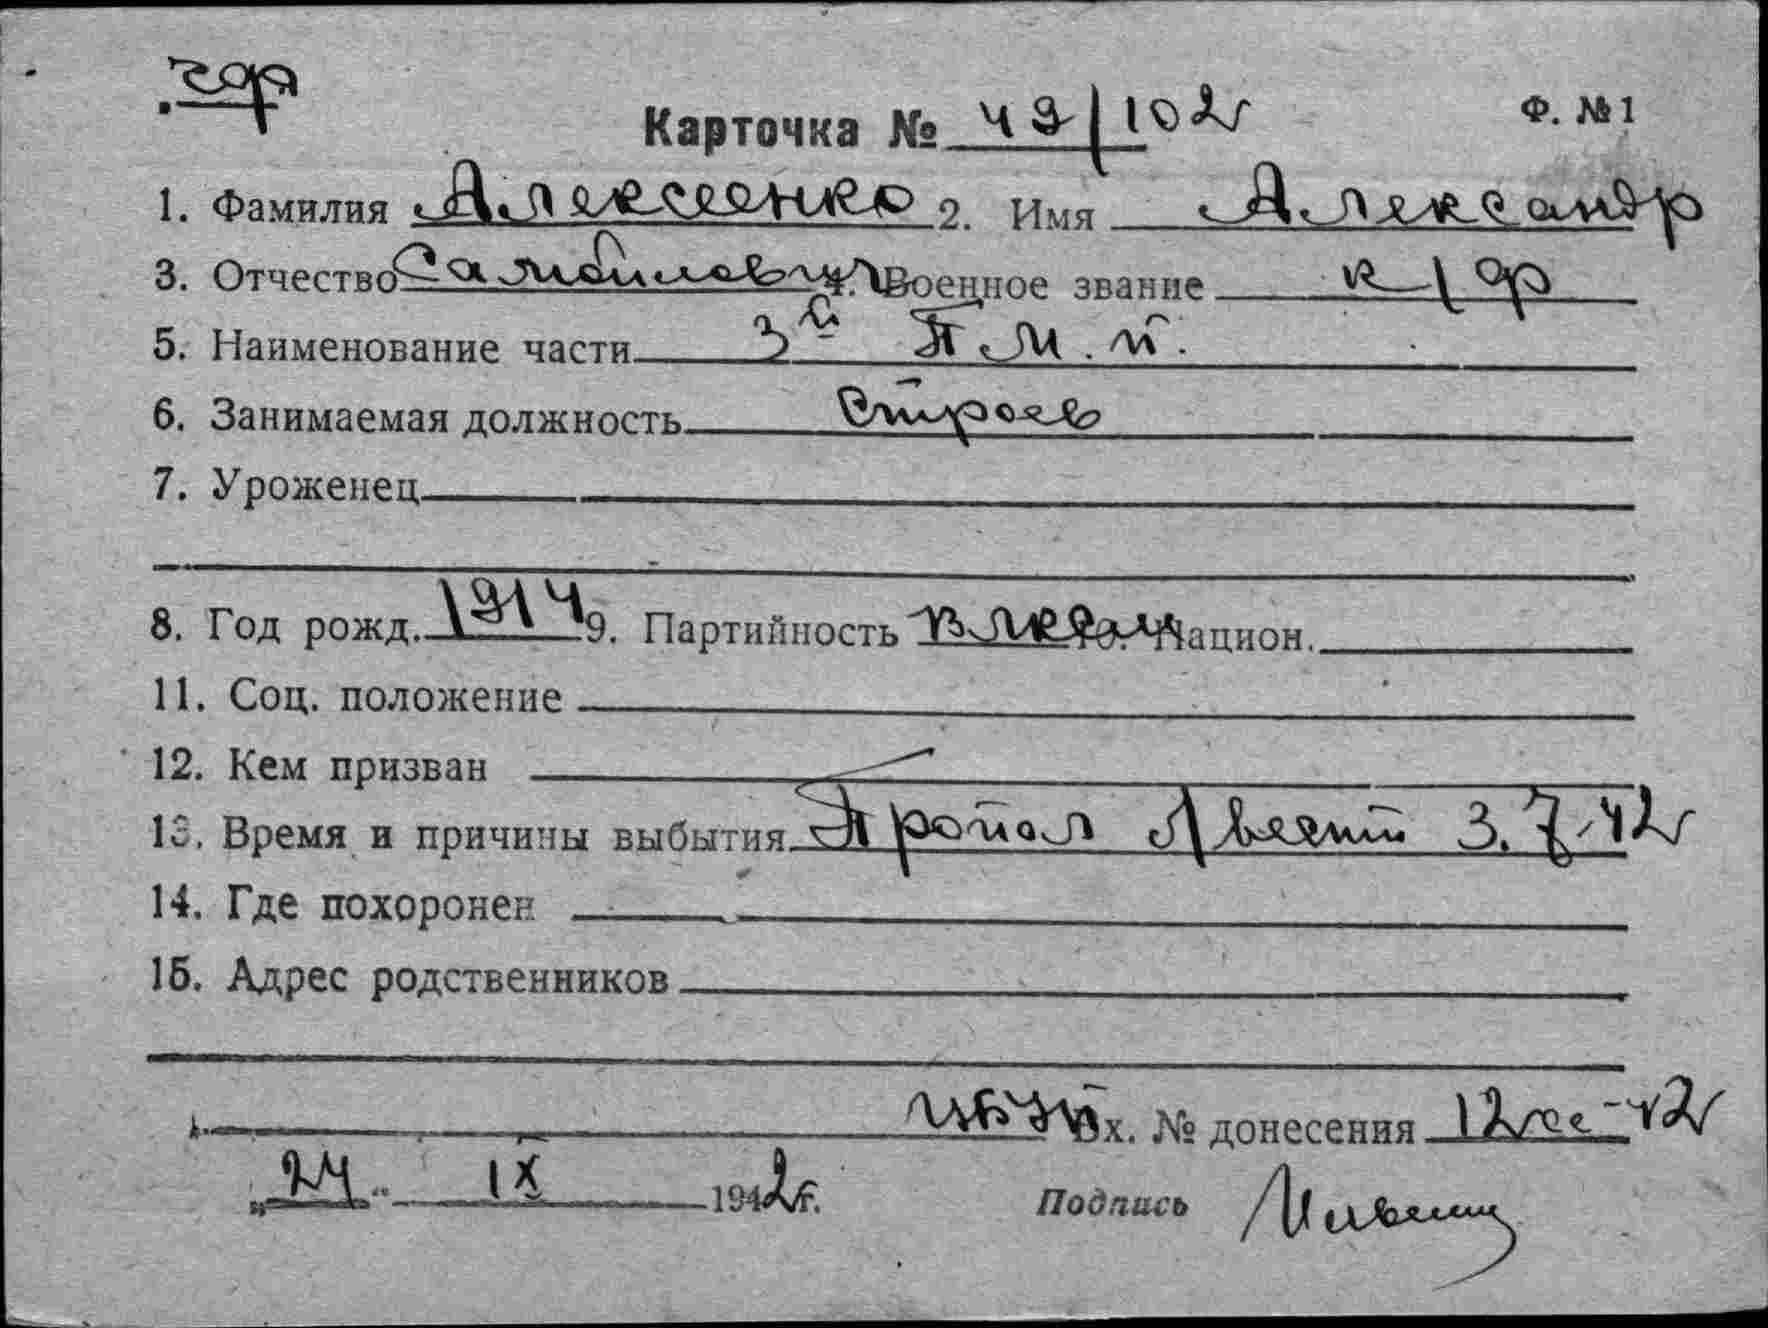 Карточка № 49/102 Ф. №1
1. Фамилия Алексеенко 2. Имя Александр
3. Отчество 4. Военное звание к/ф
5. Наименование части 3й П.М.П.
6. Занимаемая должность Строев
7. Уроженец
8. Год рожд. 1914 9. Партийность влксм 10. Национ.
11. Соц. положение
12. Кем призван
13. Время и причины выбытия Пропал без вести 3.7.42
14. Где похоронен
15. Адрес родственников
Вх. № донесения
„24“ IX 1942г. Подпись